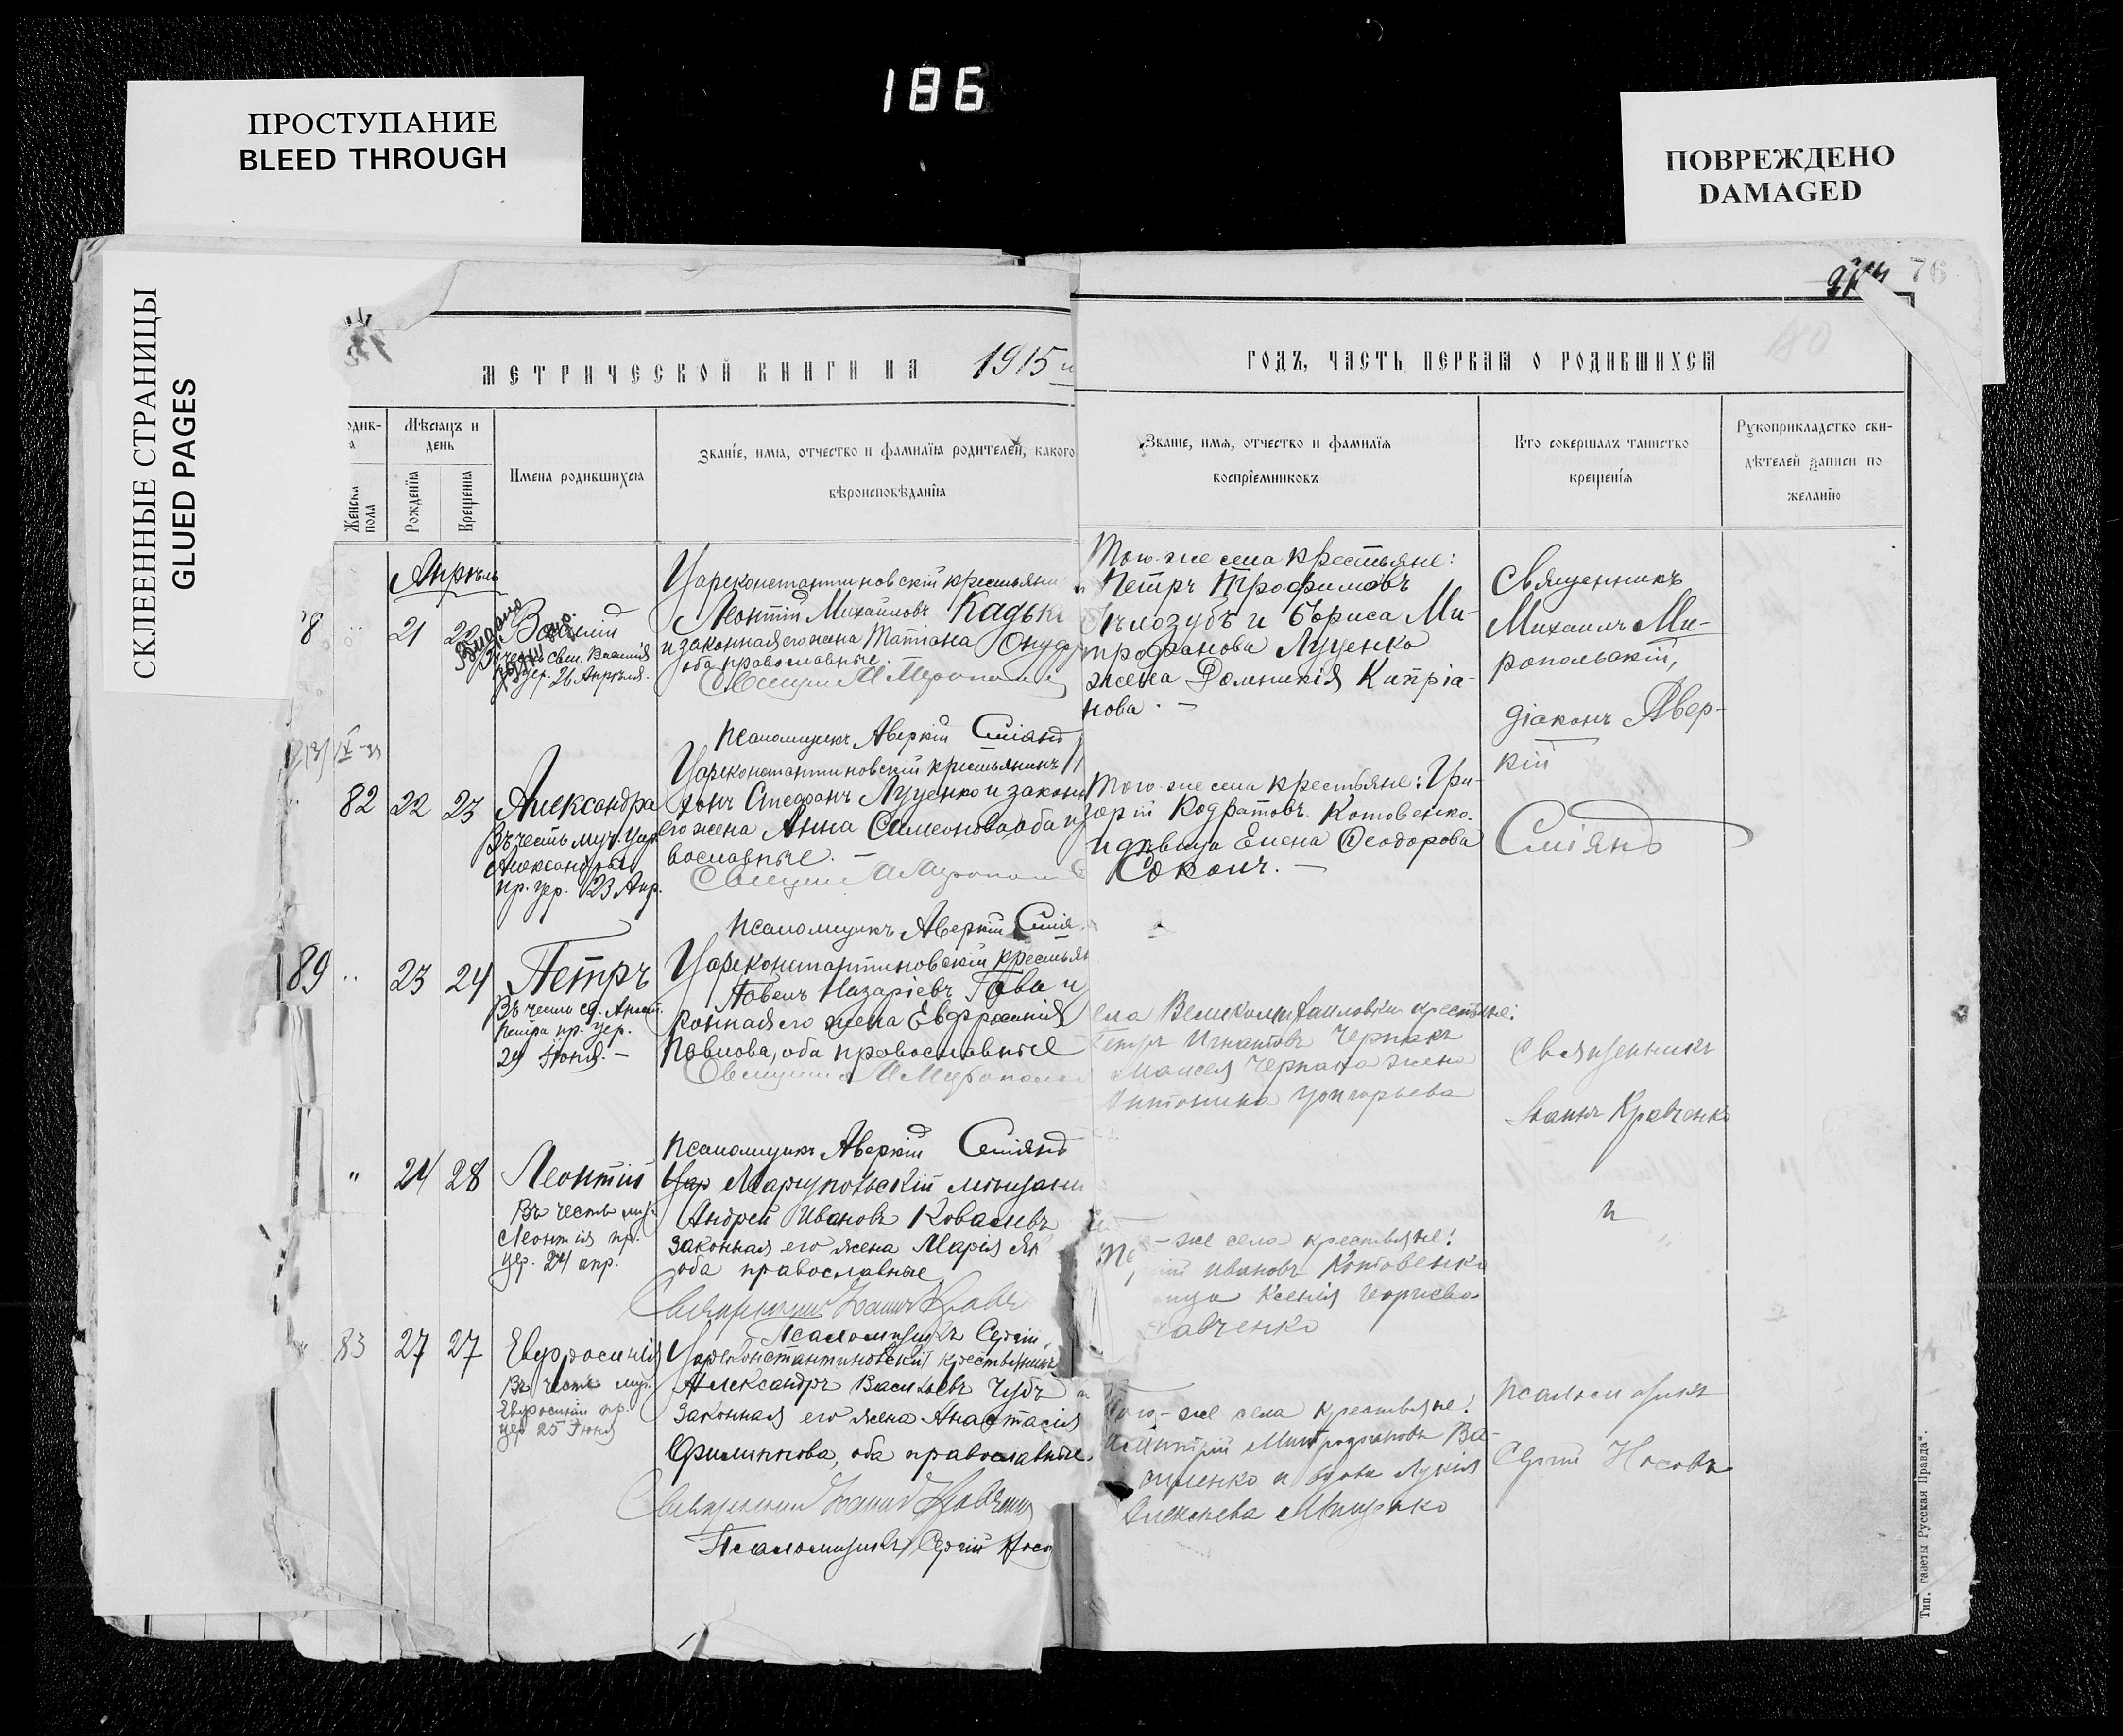 186
ПРОСТУПАНИЕ
BLEED THROUGH
ПОВРЕЖДЕНО
DAMAGED
СКЛЕЕННЫЕ СТРАНИЦЫ
GLUED PAGES
76
80
МЕТРИЧЕСКОЙ КНИГИ НА 1915
ГОДЪ, ЧАСТЬ ПЕРВАЯ О РОДИВШИХСЯ
Мѣсяцъ и
день
Женска
пола
Рожденїя
Крещенїя
Имена родившихся
Званїе, имя, отчество и фамилїя родителей, какого
вѣроисповѣданїя
Званїе, имя, отчество и фамилїя
воспрїемниковъ
Кто совершалъ таинство
крещенїя
Рукоприкладство сви-
дѣтелей записи по
желанїю
Апрѣль
8
21
22
Василій
Въ честь свщ. Василія
пр. цер. 26 Апрѣля.
Цареконстантиновскій крестьяни
Леонтій Михайловъ Кадька
и законная его жена Татіана Онуф
оба православные.
Псаломщикъ Аверкій Сміянъ
Того-же села крестьяне:
Петръ Трофимовъ
Бѣлозубъ и Бориса Ми-
трофанова Луценко
жена Домникія Кипріа-
нова. —
Священникъ
Михаилъ Ми-
ропольскій,
діаконъ Авер-
кій
Сміянъ
82
22
23
Александра
Въ честь муч. Цар.
Александры
пр. цер. 23 Апр.
Цареконстантиновскій крестьянинъ
Стефанъ Луценко и законн
его жена Анна Симеонова, оба п
вославные. —
Псаломщикъ Аверкій Смія
Того-же села крестьяне: Гри-
горій Кодратовъ Котовенко
и дѣвица Елена Ѳеодорова
Соколъ. —
89
23
24
Петръ
Въ честь св. Апост.
Петра пр. цер.
29 Іюня. —
Цареконстантиновскій крестьян
Павелъ Назаріевъ Гава и
конная его жена Евфросинія
Павлова, оба православные
Псаломщикъ Аверкій Сміянъ
ела Великомихайловки крестьяне:
Петръ Игнатовъ Чернакъ
Моисея Чернака жена
Антонина Григорьева
Священникъ
Іоаннъ Кравченко
"
24
28
Леонтій
Въ честь муч.
Леонтія пр.
цер. 24 апр.
Мариупольскій мѣщани
Андрей Ивановъ Ковалевъ
законная его жена Марія Як
оба православные
Священникъ Іоаннъ Кравч
Псаломщикъ Сергій
же села крестьяне:
Ивановъ Котовенко
ица Ксенія Георгіева
авченко
"
83
27
27
Евфросинія
Въ честь муч.
Евфросиніи пр.
цер 25 Іюня
Цареконстантиновскій крестьянинъ
Александръ Васильевъ Чубъ и
законная его жена Анастасія
Филиппова, оба православные.
Священникъ Іоаннъ Кравченко
Псаломщикъ Сергій Носо
Того-же села крестьяне:
Димитрій Митрофановъ Ва-
силенко и вдова Лукія
Алексѣева Мищенко
псаломщикъ
Сергій Носовъ
Тип. газеты Русская Правда".